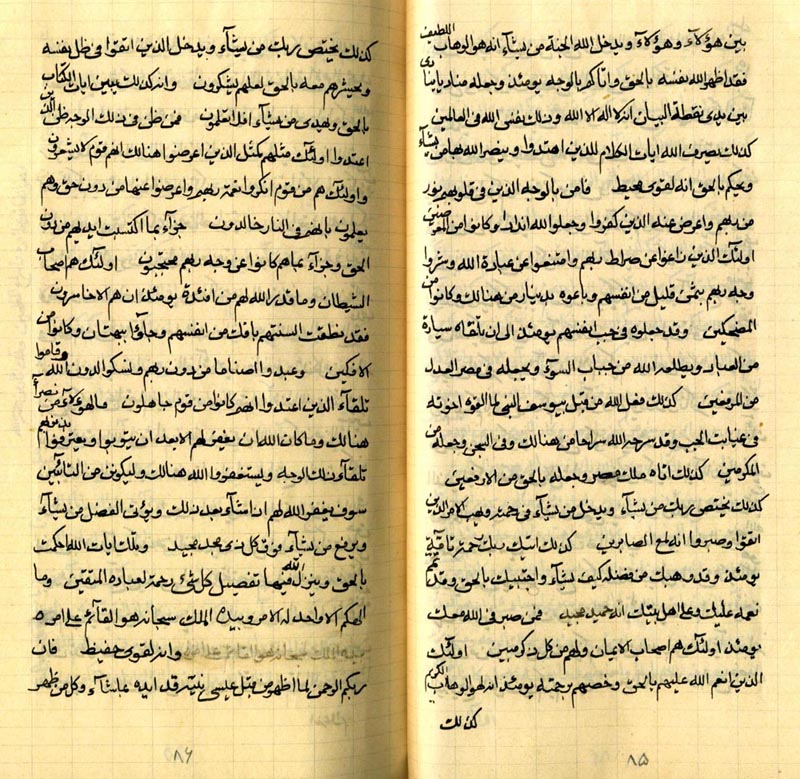 بين هؤلآء وهؤلآء ويدخل الله الجنة من يشآء انه هو الوهاب اللطيف
فقد اظهر الله نفسه بالحق واتاكم بالوجه يومئذ وجعله مناديا
بين يدى نقطة البيان انه لا اله الا الله وذلك يفنى الله فى العالمين
كذلك يصرف الله ايات الكلام للذين اهتدوا وينصر الله بها من يشآء
ويحكم بالحق انه لقوى محيط فامن بالوجه الذين فى قلوبهم نور
من ربهم واعرض عنه الذين كفروا وجعلوا لله اندادا وكانوا من
اولئك الذين زاغوا عن صراط ربهم وامتنعوا عن عبادة الله وشروا
وجه ربهم بثمن قليل من انفسهم وباعوه بدينار من هنالك وكانوا من
المضحكين وقد جعلوه فى جب انفسهم يومئذ الى ان تلقاه سيارة
من العباد ويطلعه الله من جباب السوء ويجعله فى مصر العدل
من المرفعين كذلك فعل الله من قبل بيوسف النبى لما القوه اخوته
فى غيابت الجب وقد سرحه الله سراحا من هنالك وفى السجن وجعله من
المكرمين كذلك اتاه ملك مصر وجعله بالحق من الارفعين
كذلك يختص ربك من يشآء ويدخل من يشآء فى رحمته ويهب الامر الذين
اتقوا وصبروا انه لمع الصابرين كذلك اتتك ربك رحمة
يومئذ وقد وهبك من فضله كيف يشآء واجتبيك بالحق وقد تم
نعمه عليك وعلى اهل بيتك انه حميد مجيد فمن صبر فى الله معك
يومئذ اولئك هم اصحاب الايمان ولهم من كل ذكر مبين اولئك
الذين انعم الله عليهم بالحق وخصهم برحمته يومئذ انه لهو الوهاب الكريم
كذلك
٨٥
كذلك يختص ربك من يشآء ويدخل الذين اتقوا فى ظل نفسه
ويحشرهم معه بالحق لعلهم يشكرون وانه كذلك يبين ايات الكتاب
بالحق ويهدى من يشآء افلا تعلمون فمن ظن فى ذلك الوجه ظن الذين
اعتدوا اولئك مثلهم كمثل الذين اعرضوا هنالك انهم قوم لا يشعرون
واولئك هم من قوم انكروا نعمة ربهم واعرضوا عنها من دون حق وهم
يعلمون بانهم فى النار خالدون جزآء بما اكتسبت ايديهم من دون
الحق وجزآء بما هم كانوا عن وجه ربهم محتجبون اولئك هم اصحاب
الشيطان وما قدر الله لهم من افئدة يومئذ ان هم الا خاسرون
فقد نطقت السنتهم بافك من انفسهم وجاؤا ببهتان وكانوا من
الافكين وعبدوا اصناما من دون ربهم واشركوا لدون الله وقاموا
تلقآء الذين اعتدوا انهم كانوا من قوم جاهلون فما لهؤلآء من نصرآء
هنالك وما كان الله ان يغفر لهم الا بعد ان يتوبوا ويعترفوا بذنبهم
تلقآء ذلك الوجه ويستغفروا الله هنالك وليكونن من التائبين
سوف يغفر الله لهم ان شآء بعد ذلك ويؤتى الفضل من يشآء
ويرفع من يشآء فوق كل ذى مجد مجيد وتلك ايات الله احكمت
بالحق وينزل الله فيها تفصيل كل شئ رحمة لعباده المتقين وما
الهكم الا واحد له الامر وبيده الملك سبحانه هو القآئم على امره
وانه لقوى حفيظ فان
ربكم الرحمن لما اظهر من قبل عيسى نبيه قد ايده بما شآء وكل من ظهر
٨٦